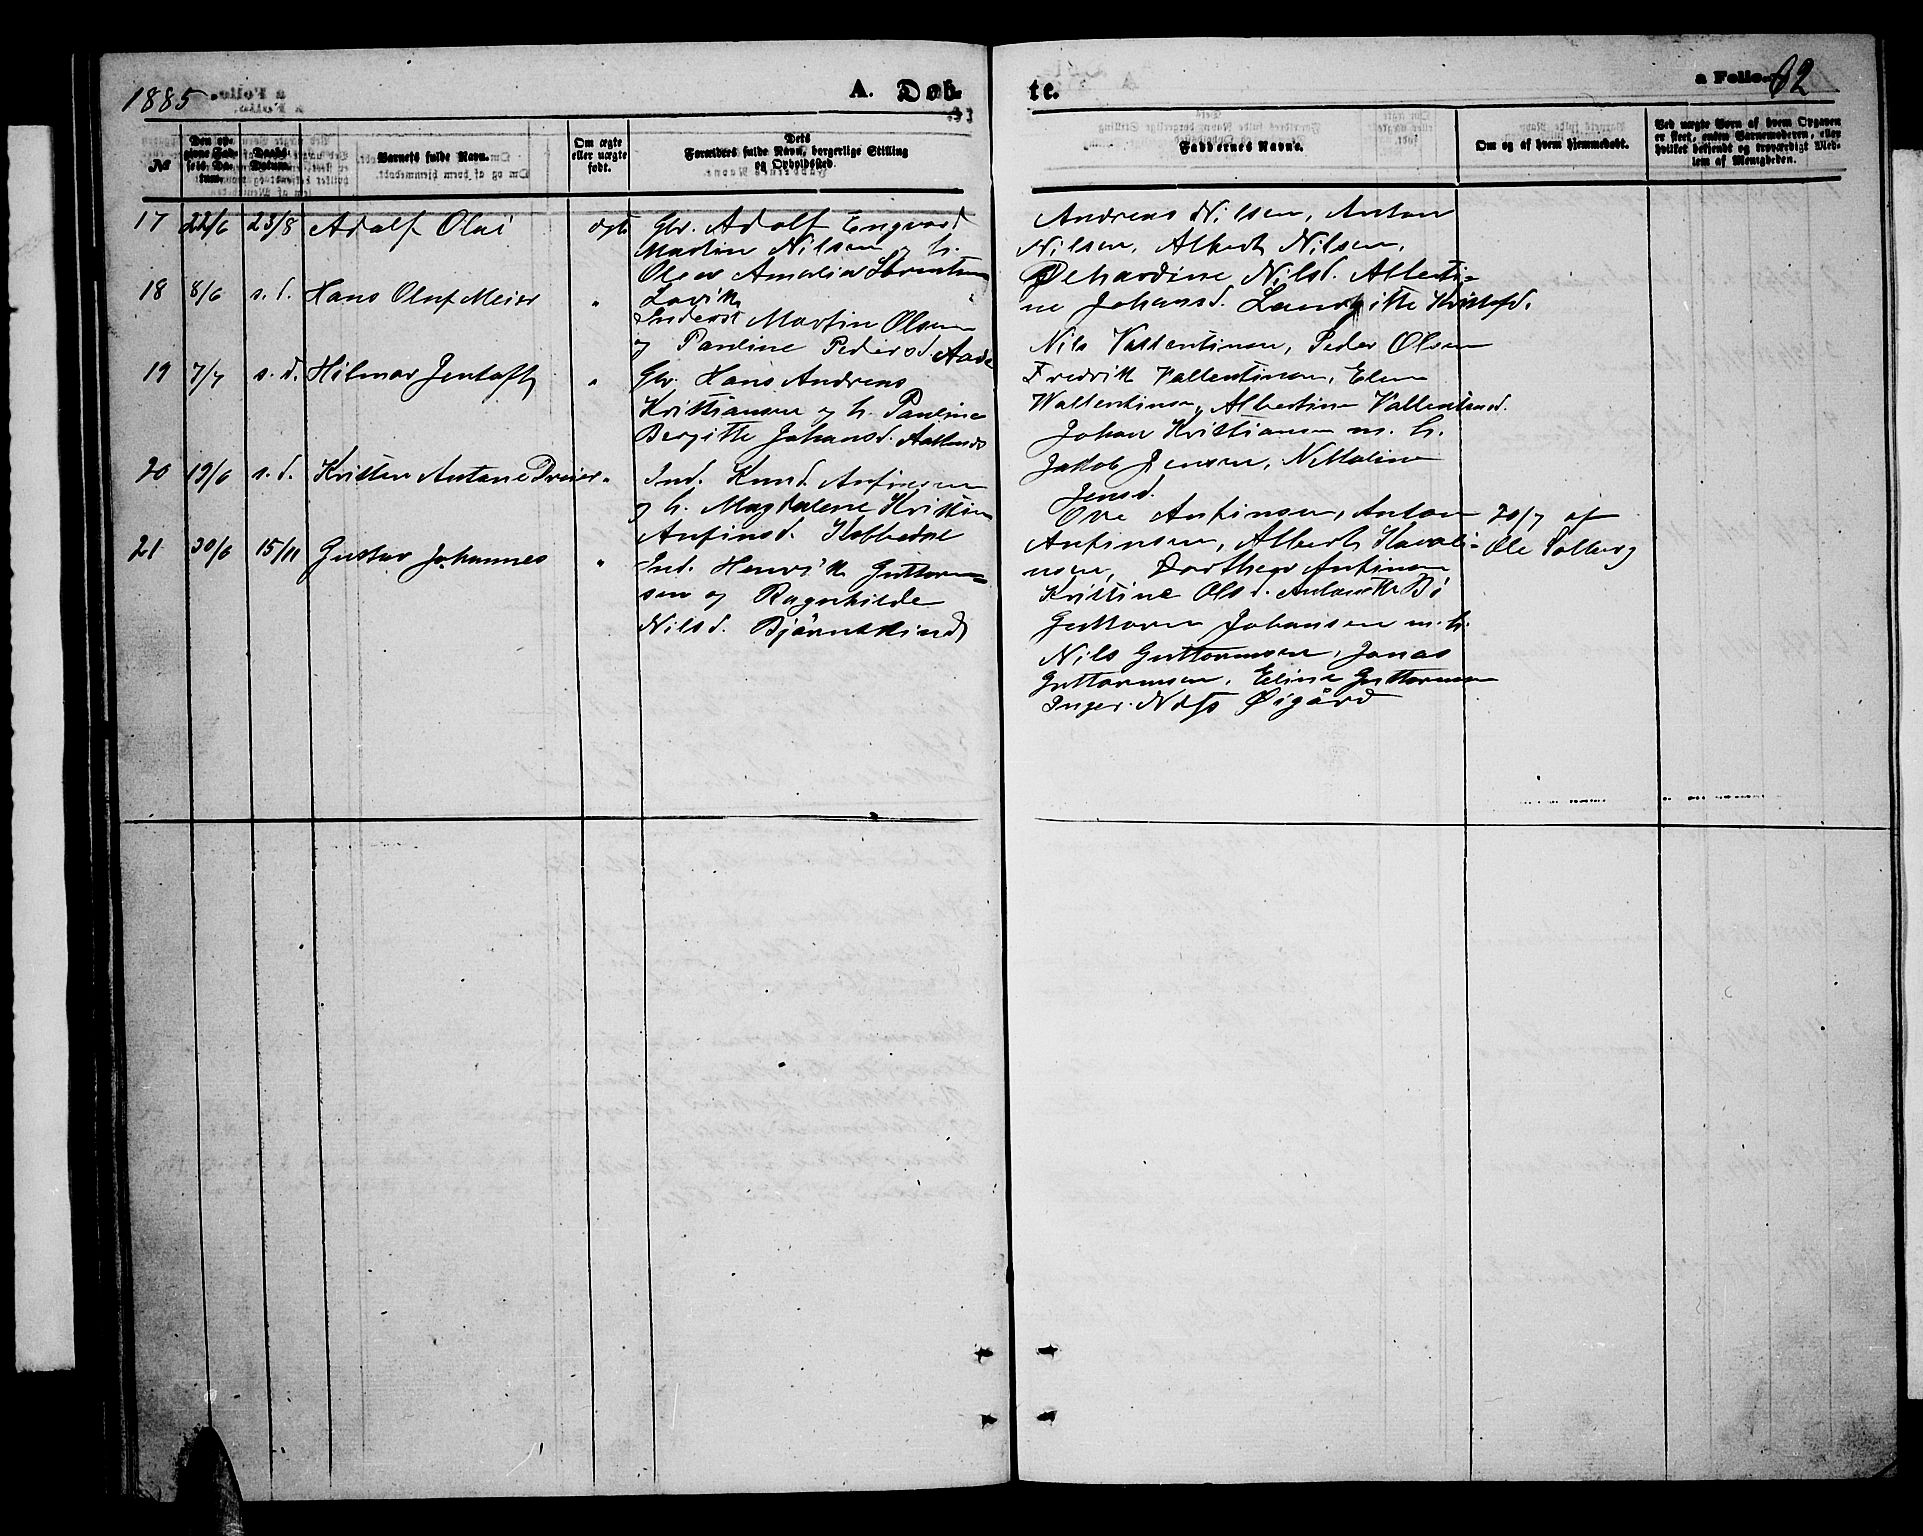 1885
A. Døb-
te.
a Folio. 62
№
Den op-
givne Fød-
sels-Da-
tum.
Daabs-
Datum.
Barnets fulde Navn.
Om ægte
eller uægte
født.
Dets
Forældres fulde Navn, borgerlige Stilling
og Opholdssted.
Faddernes Navne.
Om og af hvem hjemmedøbt.
Ved uægte Børn af hvem Opgaven
er skeet, enten Barnemoderen, eller
hvilket bekjendt og troværdigt Med-
lem af Menigheden.
17 22/6 23/8 Adolf Olai ægte
Gbr. Adolf Engvard
Martin Nilsen og h.
Olava Amalia Sørentsen
Lavik
18 8/6 s. d. Hans Oluf Meier "
Inderst Martin Olsen
og Pauline Pedersd.
19 7/7 s. d. Hilmar Jentoft "
Gbr. Hans Andreas
Kristiansen og h. Pauline
Bergitte Johansd.
20 19/6 s. d. Kristen Antane Dreier "
Ind. Knud Anfinsen
og h. Magdalene Kristine
Anfinsd. Kobbedal
21 30/6 15/11 Gustav Johannes "
Ind. Henrik Guttorm-
sen og Ragnhilde
Nilsd. Bjørnskind
Andreas Nilsen, Anton
Nilsen, Albert Nilsen,
Nilsd. Alberti-
ne Johansd.
Nils Vallentinsen, Peder Olsen
Fredrik Vallentinsen, Elen
Vallentinsen, Albertine Vallentinsd.
Johan Kristiansen m. h.
Jakob Jensen,
Jensd.
Ove Anfinsen, Anton
Anfinsen, Albert
nsen, Dorthea Anfinsen
Kristine Olsd.
Guttorm Johansen m. h.
Nils Guttormsen, Jonas
Guttormsen, Eline Guttormsen
Inger Øigård
20/7 af
Ole Solberg